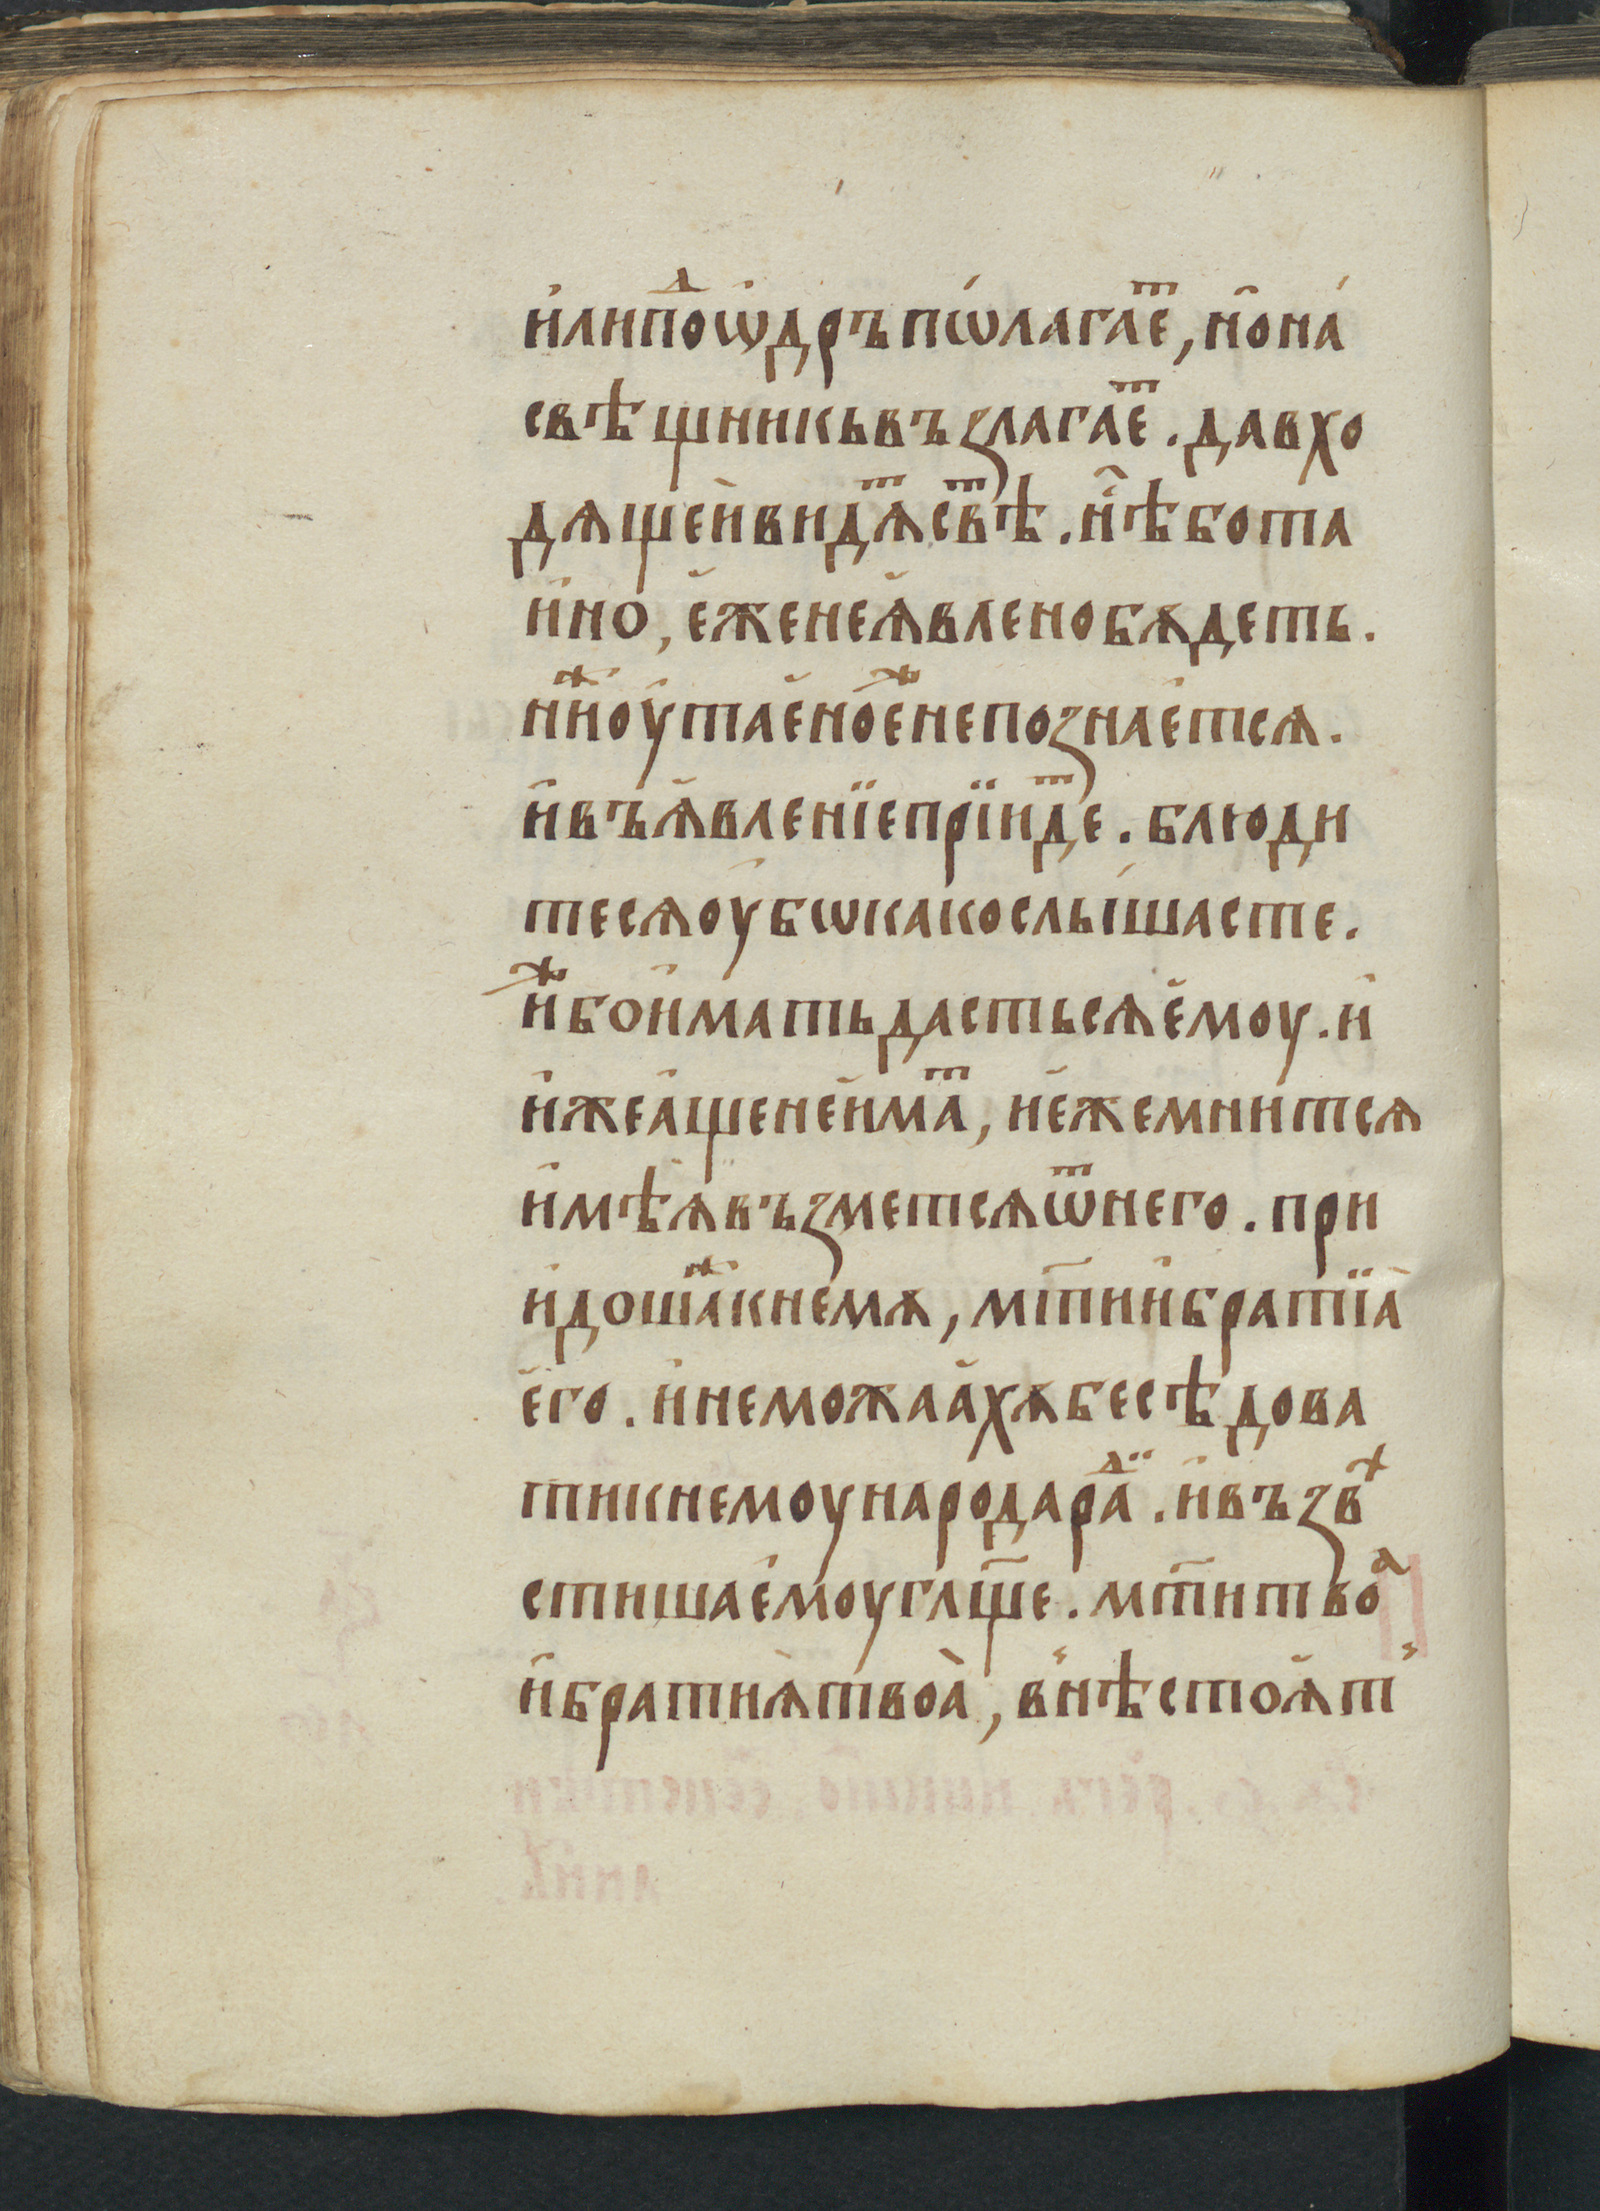 и҆липоⷣѡ҆дръпѡлагаеⷮ, и҆она́
свѣщникьвъзлагаеⷮ. давхо
дѧщеи҆видѧⷮсвѣⷮ. нѣ҆бота
и҆но, є҆женеꙗ҆вленобѫдеть.
ниⷤоу҆тає҆ноеⷤнепознае҆тсѧ.
и҆въꙗ҆вленїепрїидеⷮ. блюди
тесѧоу҆бѡкакослы́шасте.
иⷤбои҆матьдастьсѧє҆моу. и҆
и҆жеа҆щенеи҆маⷮ, ие҆жемнитсѧ
и҆мѣѧвъзметсѧѿнего. при
и҆дошаⷤкнемѫ, мт҃ии҆братїа
є҆го. и҆неможаа҆хѫбесѣдова
тикнемоународараⷣ. и҆възвⷷ
стишає҆моугл҃ще. мт҃итвоⷶ
и҆братиꙗ҆твоа̀, внѣстоꙗ҆т